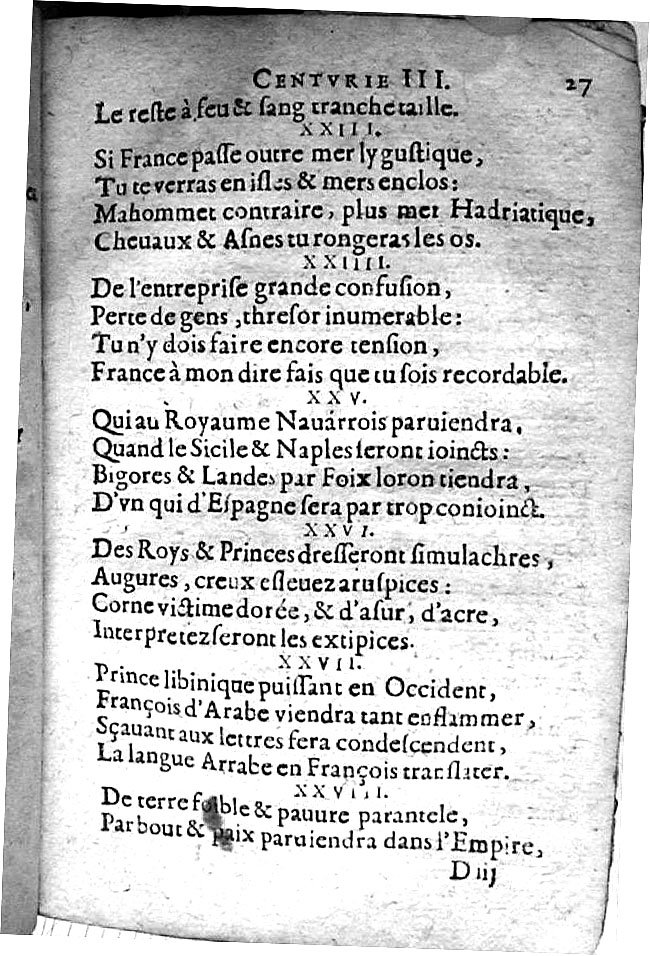 CENTVRIE III. 27
Le reſte à feu & ſang tranche taille.
XXIII.
Si France paſſe outre mer lyguſtique,
Tu te verras en iſles & mers enclos:
Mahommet contraire, plus mer Hadriatique,
Cheuaux & Aſnes tu rongeras les os.
XXIIII.
De l'entrepriſe grande confuſion,
Perte de gens, threſor inumerable:
Tu n'y dois faire encore tenſion,
France à mon dire fais que tu ſois recordable.
XXV.
Qui au Royaume Nauárrois paruiendra,
Quand le Sicile & Naples ſeront ioincts:
Bigores & Landes par Foix loron tiendra,
D'vn qui d'Eſpagne ſera par trop conioinct.
XXVI.
Des Roys & Princes dreſſeront ſimulachres,
Augures, creux eſleuez aruſpices:
Corne victime dorée, & d'aſur, d'acre,
Interpretez ſeront les extipices.
XXVII.
Prince libinique puiſſant en Occident,
François d'Arabe viendra tant enflammer,
Sçauant aux lettres fera condeſcendent,
La langue Arrabe en François tranſlater.
XXVIII.
De terre foible & pauure parantele,
Par bout & paix paruiendra dans l'Empire,
D iij